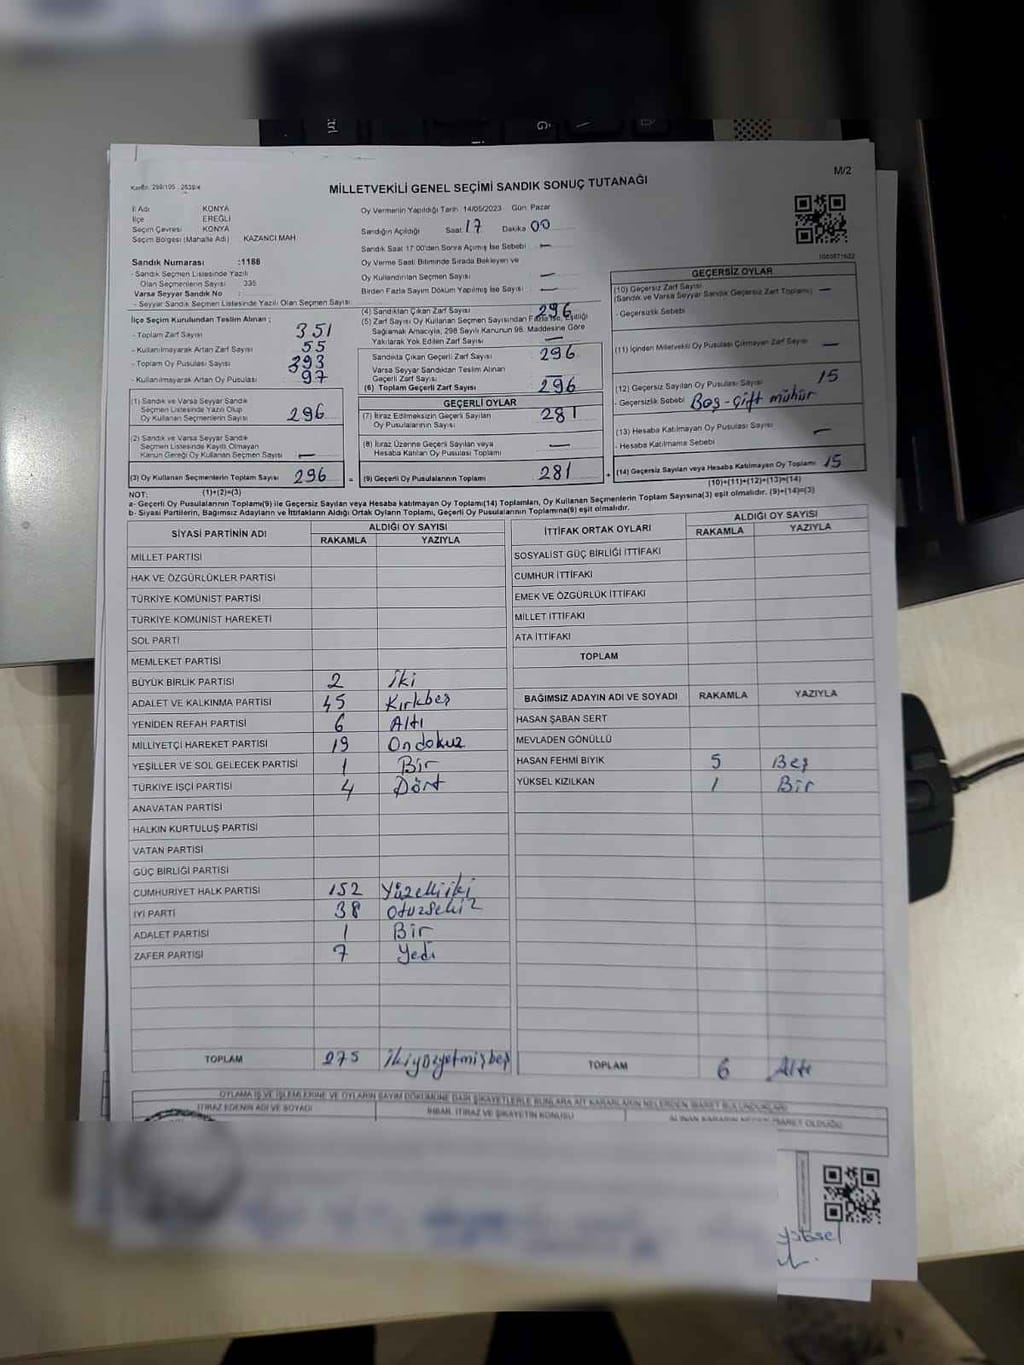 M/2
MİLLETVEKİLİ GENEL SEÇİMİ SANDIK SONUÇ TUTANAĞI
İl Adı KONYA
İlçe EREĞLİ
Seçim Çevresi KONYA
Seçim Bölgesi (Mahalle Adı) KAZANCI MAH
Sandık Numarası :1188
- Sandık Seçmen Listesinde Yazılı
Olan Seçmenlerin Sayısı : 335
Varsa Seyyar Sandık No :
- Seyyar Sandık Seçmen Listesinde Yazılı Olan Seçmen Sayısı:
Oy Vermenin Yapıldığı Tarih : 14/05/2023 Gün: Pazar
Sandığın Açıldığı Saat 17 Dakika 00
Sandık Saat 17:00'den Sonra Açılmış İse Sebebi —
Oy Verme Saati Bitiminde Sırada Bekleyen ve
Oy Kullandırılan Seçmen Sayısı —
Birden Fazla Sayım Döküm Yapılmış İse Sayısı —
İlçe Seçim Kurulundan Teslim Alınan ;
- Toplam Zarf Sayısı 351
- Kullanılmayarak Artan Zarf Sayısı 55
- Toplam Oy Pusulası Sayısı 393
- Kullanılmayarak Artan Oy Pusulası 97
(1) Sandık ve Varsa Seyyar Sandık
Seçmen Listesinde Yazılı Olup
Oy Kullanan Seçmenlerin Sayısı 296
(2) Sandık ve Varsa Seyyar Sandık
Seçmen Listesinde Kayıtlı Olmayan
Kanun Gereği Oy Kullanan Seçmen Sayısı —
(3) Oy Kullanan Seçmenlerin Toplam Sayısı 296
(1)+(2)=(3)
(4) Sandıktan Çıkan Zarf Sayısı 296
(5) Zarf Sayısı Oy Kullanan Seçmen Sayısından Fazla İse, Eşitliği
Sağlamak Amacıyla, 298 Sayılı Kanunun 98. Maddesine Göre
Yakılarak Yok Edilen Zarf Sayısı —
Sandıkta Çıkan Geçerli Zarf Sayısı 296
Varsa Seyyar Sandıktan Teslim Alınan
Geçerli Zarf Sayısı —
(6) Toplam Geçerli Zarf Sayısı 296
GEÇERLİ OYLAR
(7) İtiraz Edilmeksizin Geçerli Sayılan
Oy Pusulalarının Sayısı 281
(8) İtiraz Üzerine Geçerli Sayılan veya
Hesaba Katılan Oy Pusulası Toplamı —
(9) Geçerli Oy Pusulalarının Toplamı 281
GEÇERSİZ OYLAR
(10) Geçersiz Zarf Sayısı —
(Sandık ve Varsa Seyyar Sandık Geçersiz Zarf Toplamı)
- Geçersizlik Sebebi
(11) İçinden Milletvekili Oy Pusulası Çıkmayan Zarf Sayısı —
(12) Geçersiz Sayılan Oy Pusulası Sayısı 15
- Geçersizlik Sebebi Boş-Çift mühür
(13) Hesaba Katılmayan Oy Pusulası Sayısı —
- Hesaba Katılmama Sebebi
(14) Geçersiz Sayılan veya Hesaba Katılmayan Oy Toplamı 15
(10)+(11)+(12)+(13)=(14)
NOT:
a- Geçerli Oy Pusulalarının Toplamı(9) ile Geçersiz Sayılan veya Hesaba katılmayan Oy Toplamı(14) Toplamları, Oy Kullanan Seçmenlerin Toplam Sayısına(3) eşit olmalıdır. (9)+(14)=(3)
b- Siyasi Partilerin, Bağımsız Adayların ve İttifakların Aldığı Ortak Oyların Toplamı, Geçerli Oy Pusulalarının Toplamına(9) eşit olmalıdır.
SİYASİ PARTİNİN ADI ALDIĞI OY SAYISI
RAKAMLA YAZIYLA
MİLLET PARTİSİ
HAK VE ÖZGÜRLÜKLER PARTİSİ
TÜRKİYE KOMÜNİST PARTİSİ
TÜRKİYE KOMÜNİST HAREKETİ
SOL PARTİ
MEMLEKET PARTİSİ
BÜYÜK BİRLİK PARTİSİ 2 İki
ADALET VE KALKINMA PARTİSİ 45 Kırkbeş
YENİDEN REFAH PARTİSİ 6 Altı
MİLLİYETÇİ HAREKET PARTİSİ 19 Ondokuz
YEŞİLLER VE SOL GELECEK PARTİSİ 1 Bir
TÜRKİYE İŞÇİ PARTİSİ 4 Dört
ANAVATAN PARTİSİ
HALKIN KURTULUŞ PARTİSİ
VATAN PARTİSİ
GÜÇ BİRLİĞİ PARTİSİ
CUMHURİYET HALK PARTİSİ 152 Yüzelliiki
İYİ PARTİ 38 Otuzsekiz
ADALET PARTİSİ 1 Bir
ZAFER PARTİSİ 7 Yedi
TOPLAM 275 İkiyüzyetmişbeş
İTTİFAK ORTAK OYLARI ALDIĞI OY SAYISI
RAKAMLA YAZIYLA
SOSYALİST GÜÇ BİRLİĞİ İTTİFAKI
CUMHUR İTTİFAKI
EMEK VE ÖZGÜRLÜK İTTİFAKI
MİLLET İTTİFAKI
ATA İTTİFAKI
TOPLAM
BAĞIMSIZ ADAYIN ADI VE SOYADI RAKAMLA YAZIYLA
HASAN ŞABAN SERT
MEVLADEN GÖNÜLLÜ
HASAN FEHMİ BIYIK 5 Beş
YÜKSEL KIZILKAN 1 Bir
TOPLAM 6 Altı
OYLAMA İŞ VE İŞLEMLERİNE VE OYLARIN SAYIM DÖKÜMÜNE DAİR ŞİKAYETLERLE BUNLARA AİT KARARLARIN NELERDEN İBARET BULUNDUKLARI
İTİRAZ EDENİN ADI VE SOYADI İHBAR, İTİRAZ VE ŞİKAYETİN KONUSU